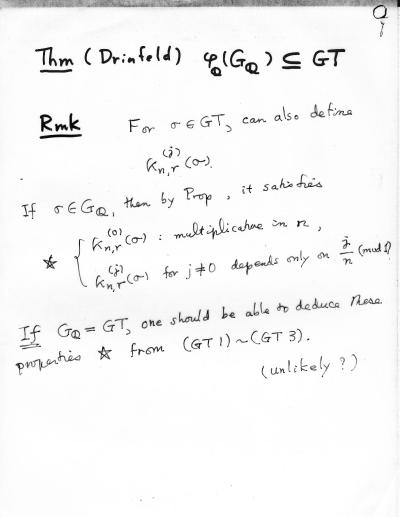 Thm (Drinfeld) φ_Q(G_Q) ⊆ GT
Rmk For σ ∈ GT, can also define
K_{n,r}^{(j)}(σ).
If σ ∈ G_Q, then by Prop, it satisfies
☆ { K_{n,r}^{(0)}(σ) : multiplicative in n,
K_{n,r}^{(j)}(σ) for j ≠ 0 depends only on j/n (mod 1)
If G_Q = GT, one should be able to deduce these
properties ☆ from (GT1) ~ (GT3).
(unlikely?)